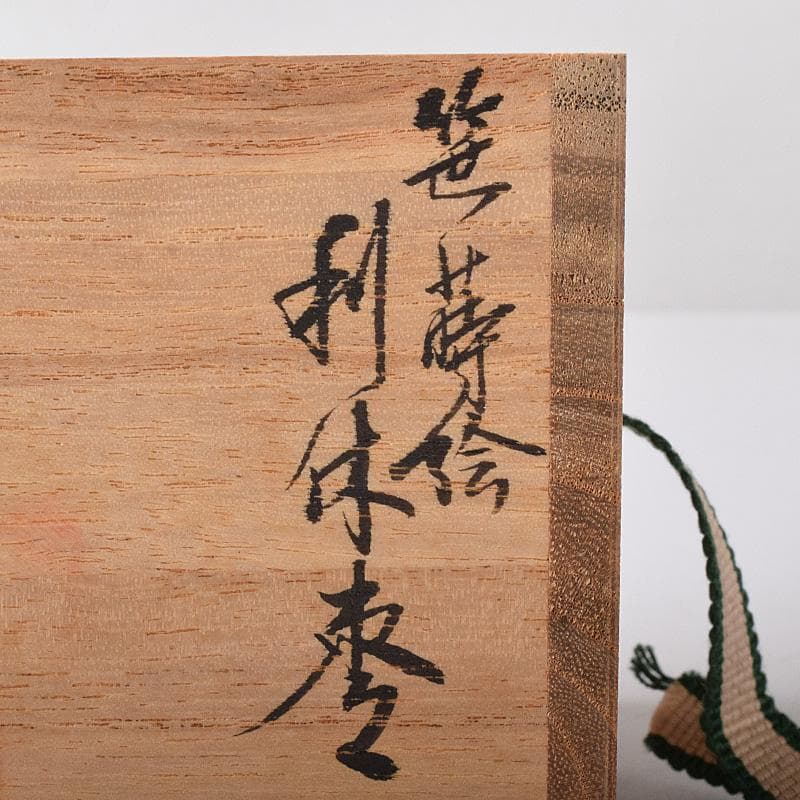 笹蒔絵
利休棗